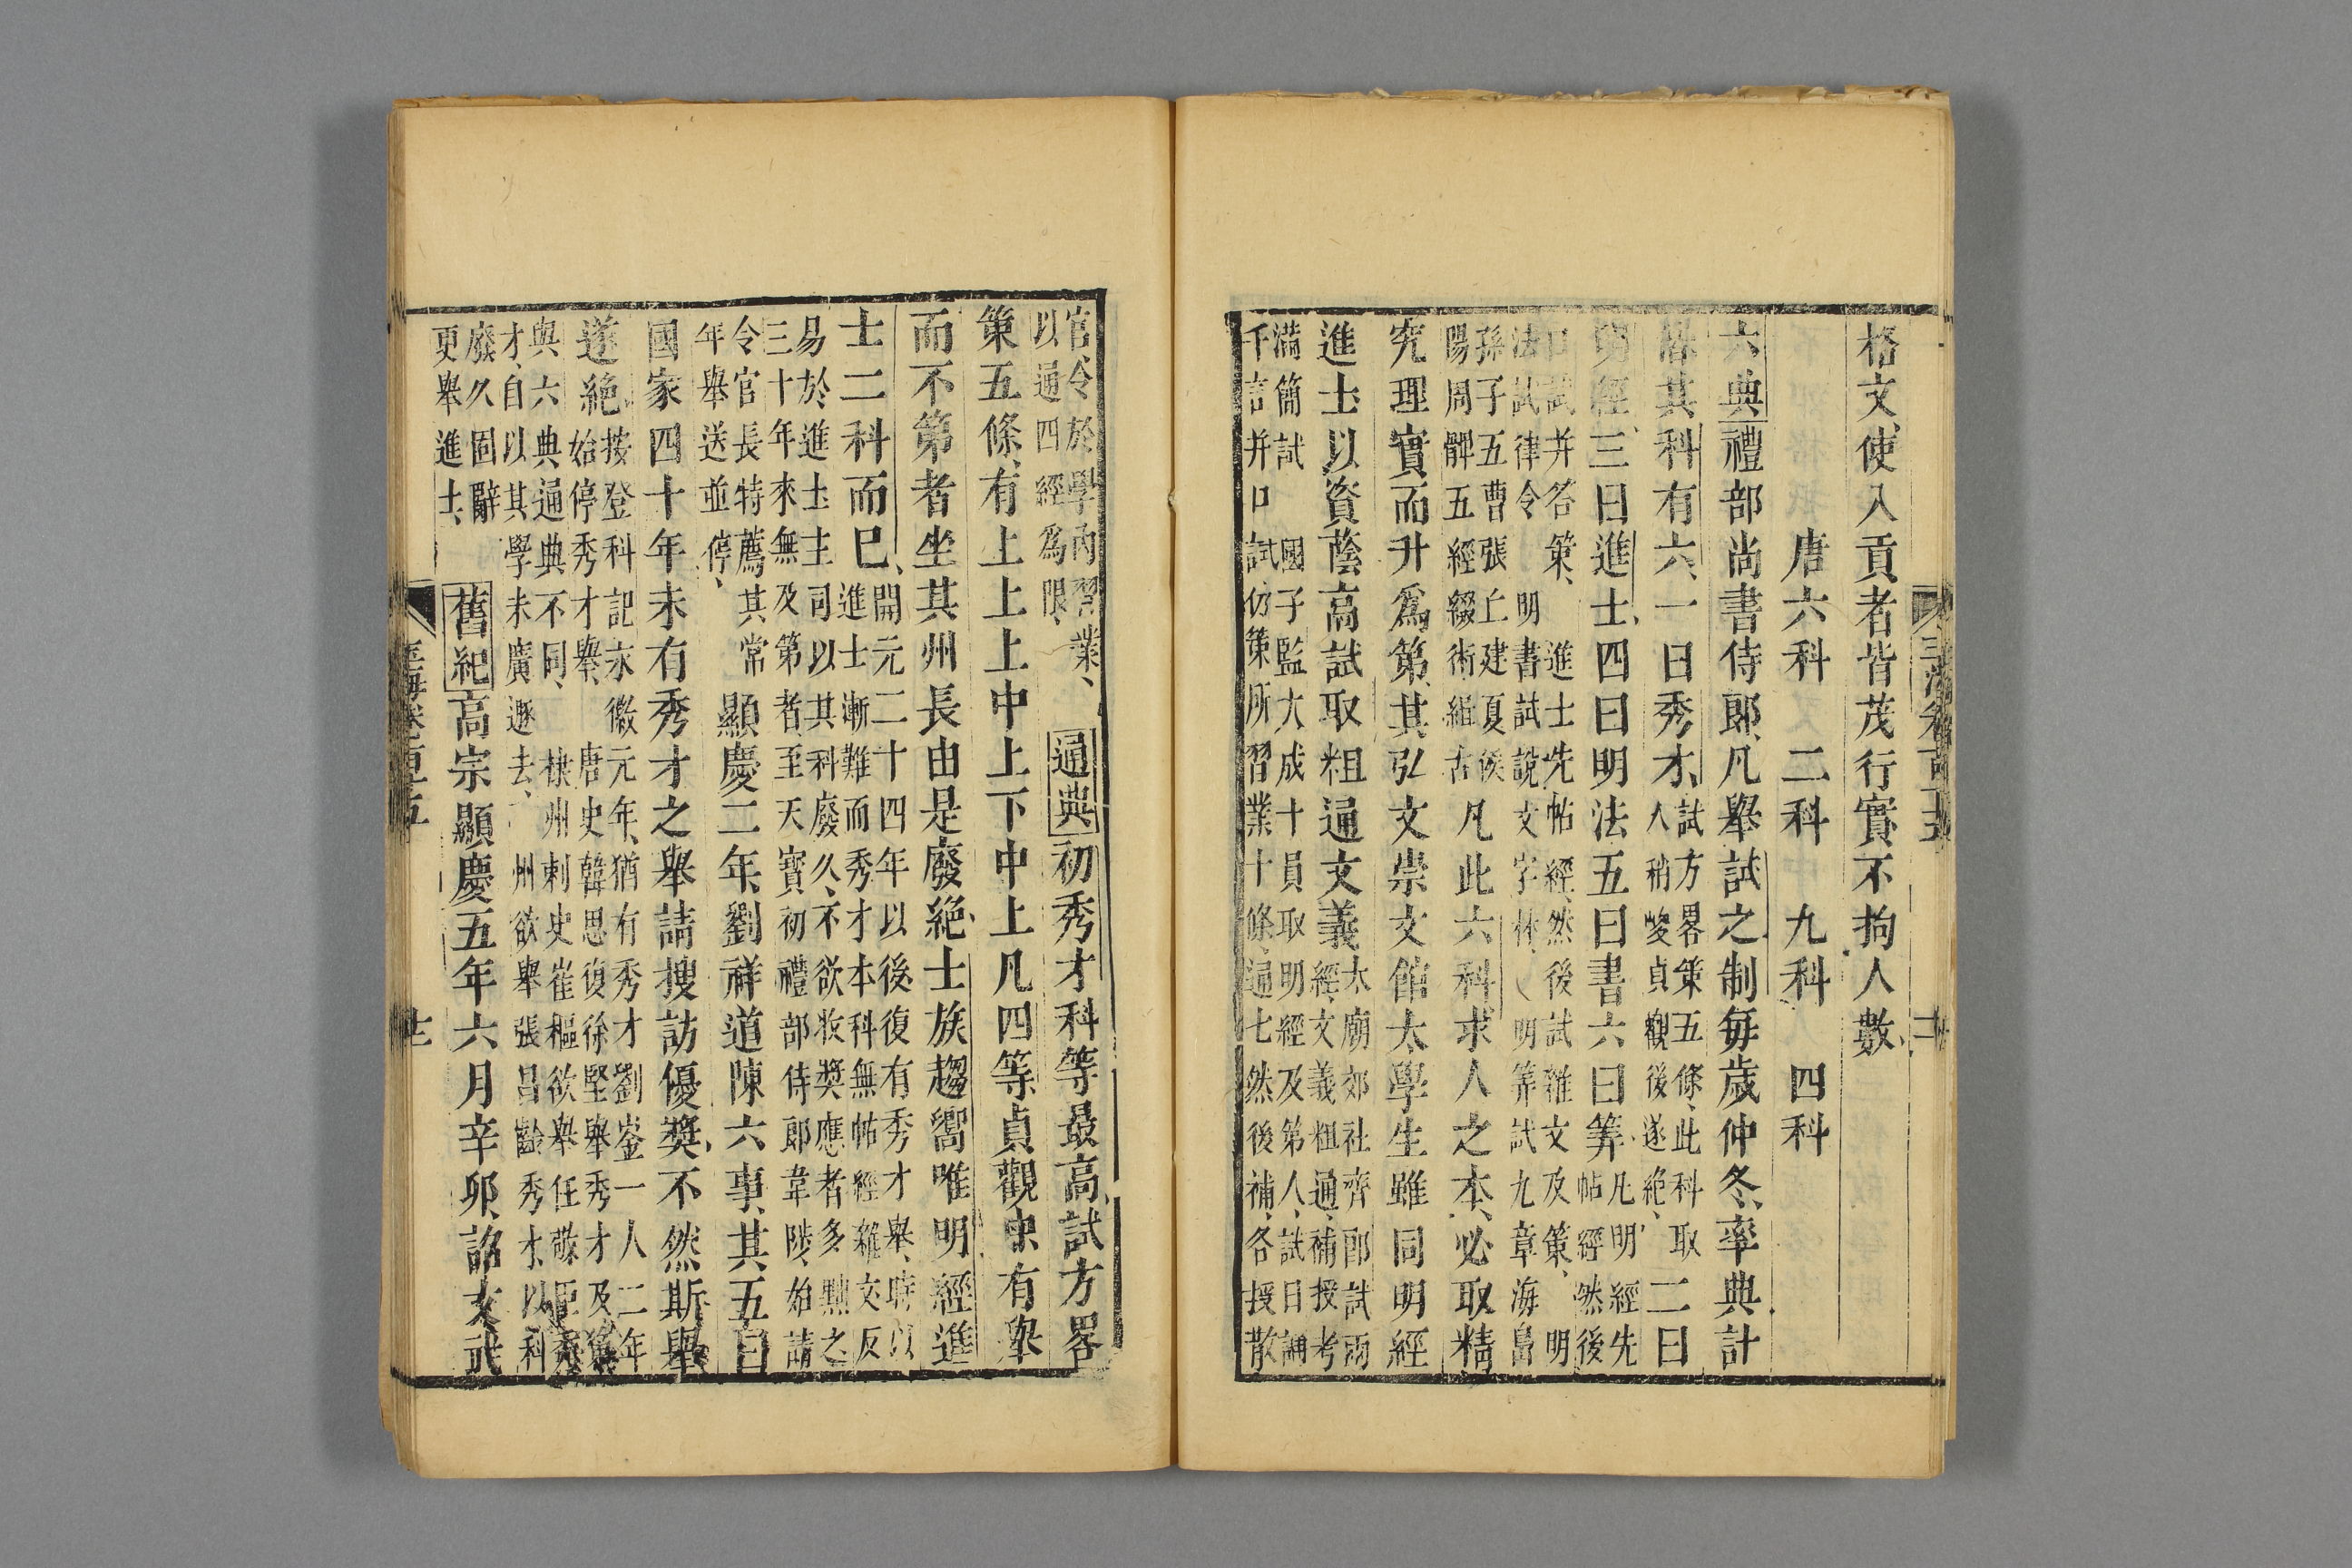 格文使入貢者皆茂行實不拘人數
唐六科 二科 九科 四科
六典禮部尚書侍郎凡舉試之制每歲仲冬率典計
其科有六一曰秀才試方畧策五條此科取
人稍峻貞觀後遂絶二曰
明經三曰進士四曰明法五曰書六曰筭凡明經先
帖經然後
口試并答策進士先帖經然後試雜文及策明
法試律令明書試說文字林明筭試九章海島
孫子五曹張丘建夏侯
陽周髀五經綴術緝古凡此六科求人之本必取精
究理實而升爲第其弘文崇文館太學生雖同明經
進士以資蔭高試取粗通文義太廟郊社齊郎試兩
經文義粗通補授考
滿簡試國子監大成十員取明經及第人試日誦
千言并口試仍策所習業十條通七然後補各授散
官令於學內習業
以通四經爲限通典初秀才科等最高試方畧
策五條有上上上中上下中上凡四等貞觀中有舉
而不第者坐其州長由是廢絶士族趨嚮唯明經進
士二科而已開元二十四年以後復有秀才舉時以
進士漸難而秀才本科無帖經雜文反
易於進士主司以其科廢久不欲收奬應者多黜之
三十年來無及第者至天寶初禮部侍郎韋陟始請
令官長特薦其常
年舉送並停顯慶二年劉祥道陳六事其五曰
國家四十年未有秀才之舉請搜訪優奬不然斯舉
遂絶按登科記永徽元年猶有秀才劉崟一人二年
始停秀才舉唐史韓思復徐堅舉秀才及
與六典通典不同棣州刺史崔樞欲舉任敬臣秀
才自以其學未廣遯去州欲舉張昌齡秀才以科
廢久固辭
更舉進士舊紀高宗顯慶五年六月辛卯詔文武